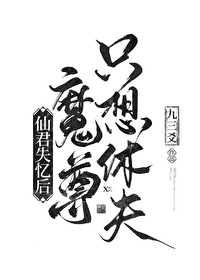 仙君失忆后
魔尊
只想休夫
九三爻
作品